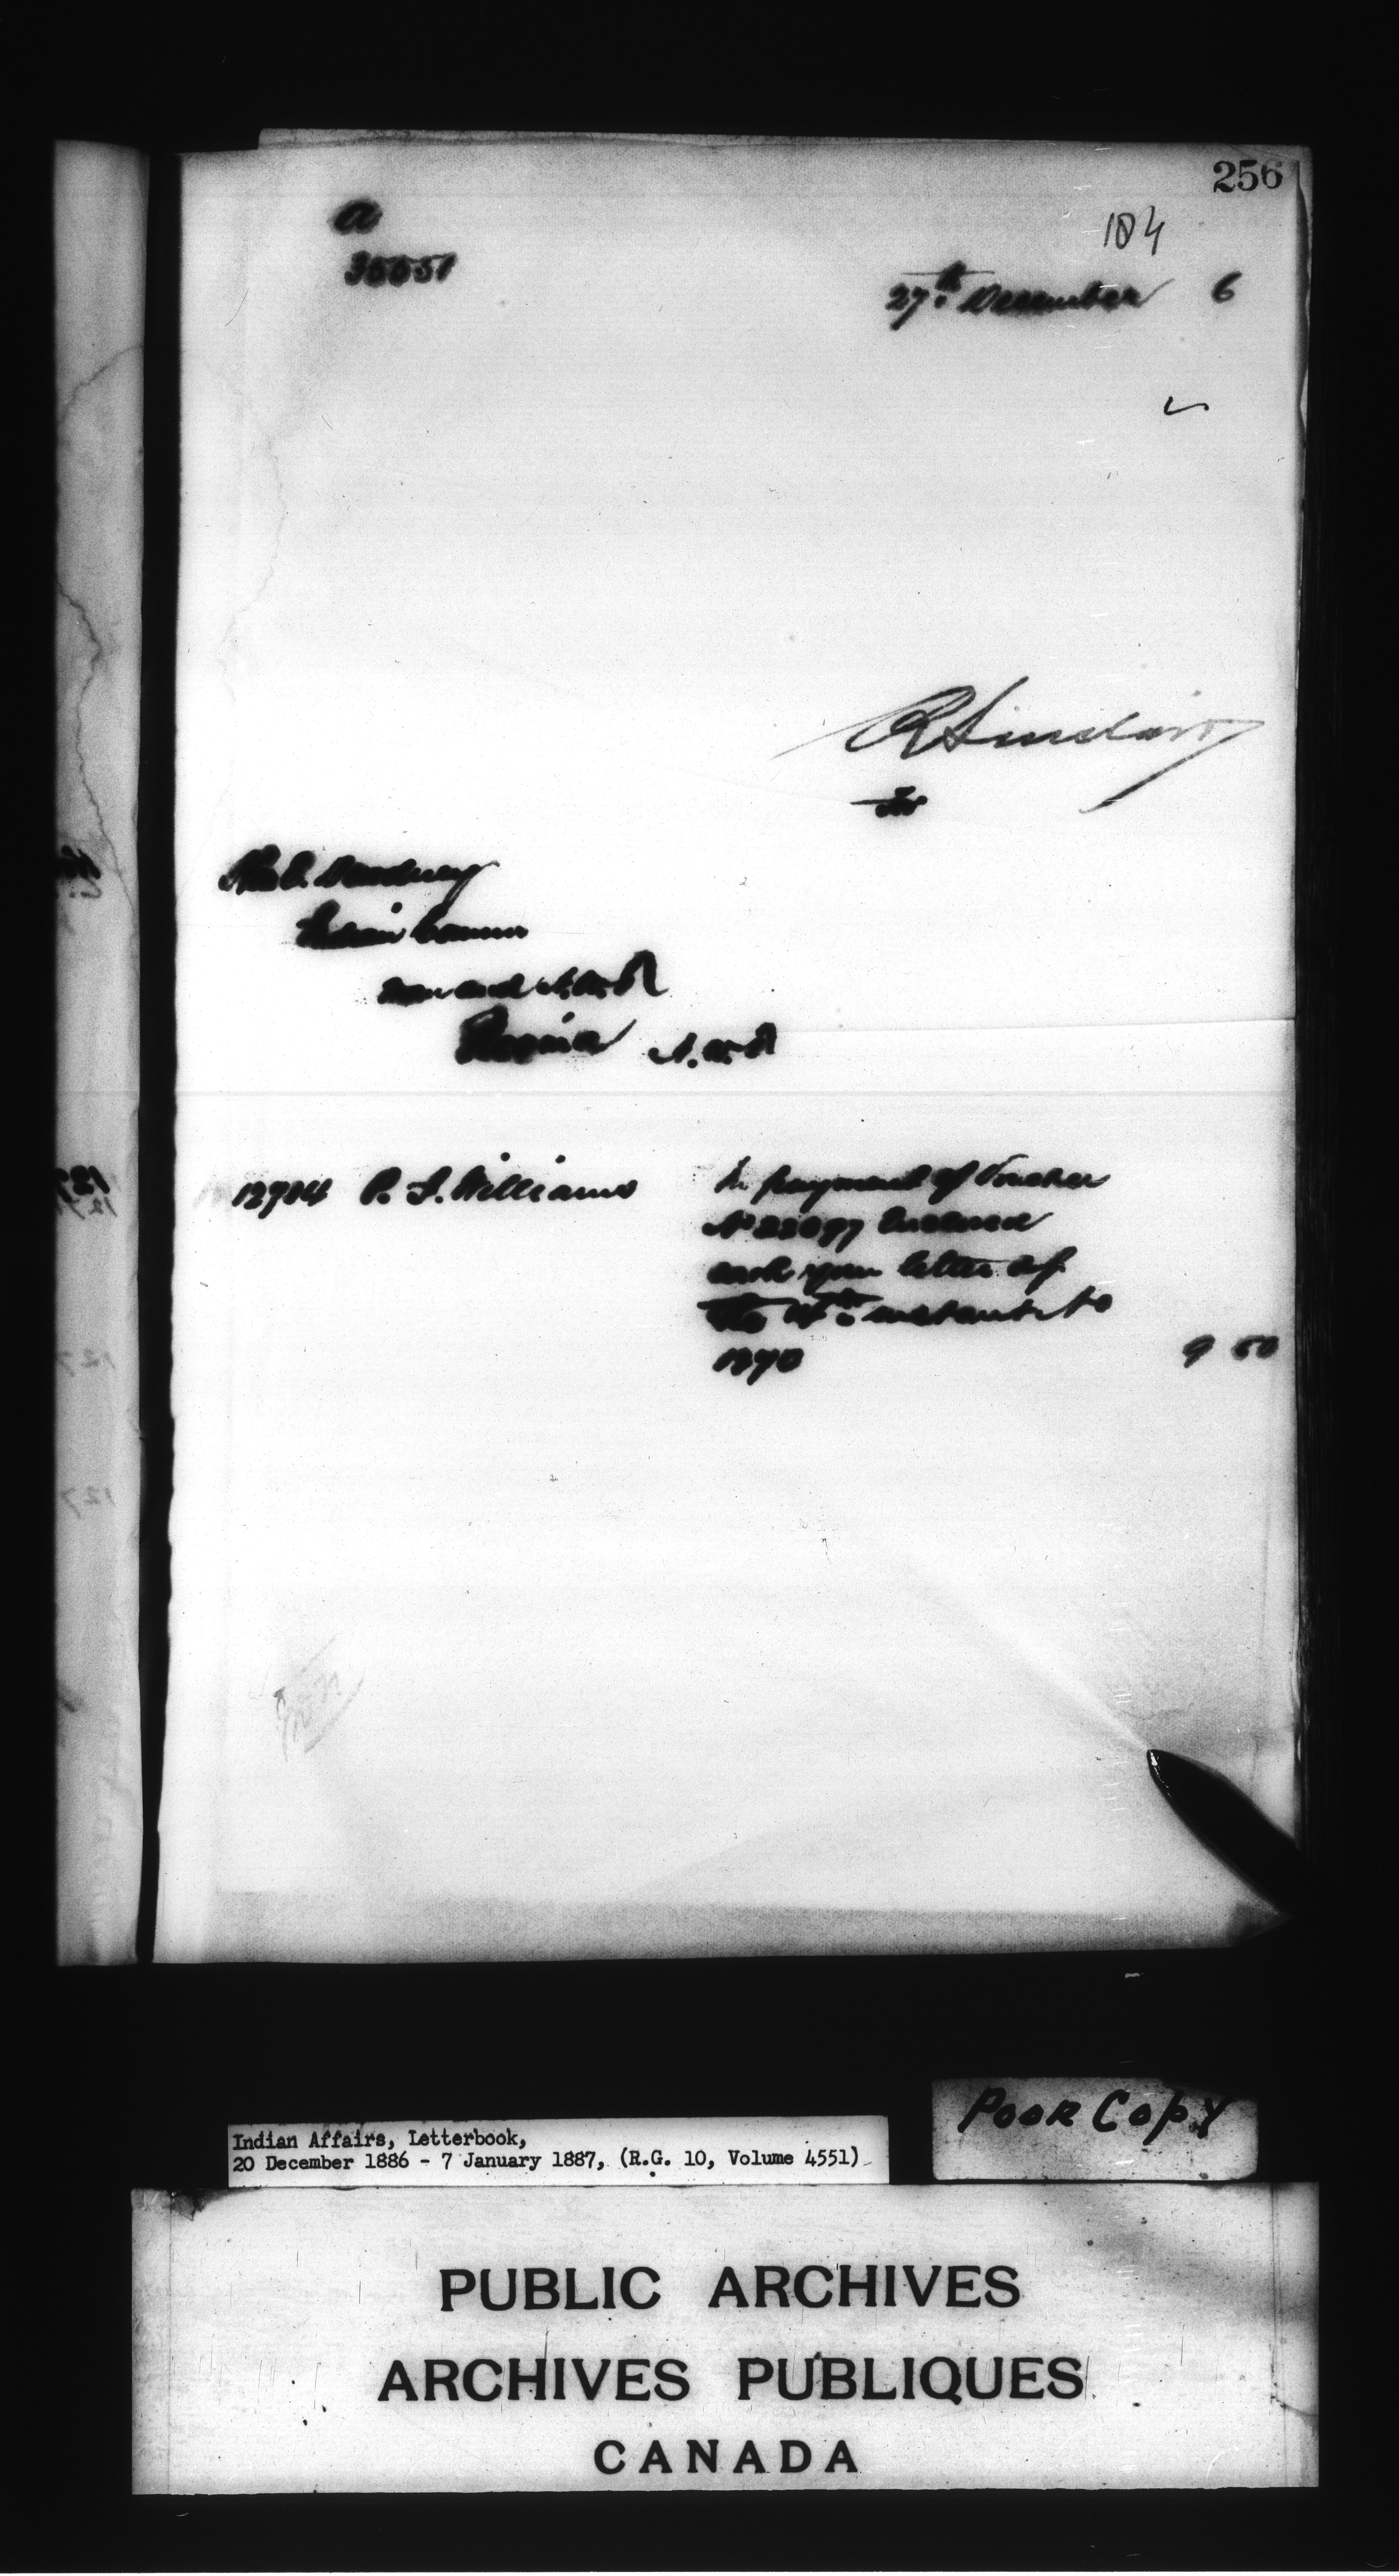 256
184
a
35051
27th December 6
R Sinclair
for
E. Dewdney
Indian Commr
Man and N.W.T
Regina N.W.T
12704 P. J. Williams
In payment of Voucher
No enclosed
with your letter of
the instant
1270
9 50
Poor Copy
Indian Affairs, Letterbook,
20 December 1886 - 7 January 1887, (R.G. 10, Volume 4551)
PUBLIC ARCHIVES
ARCHIVES PUBLIQUES
CANADA